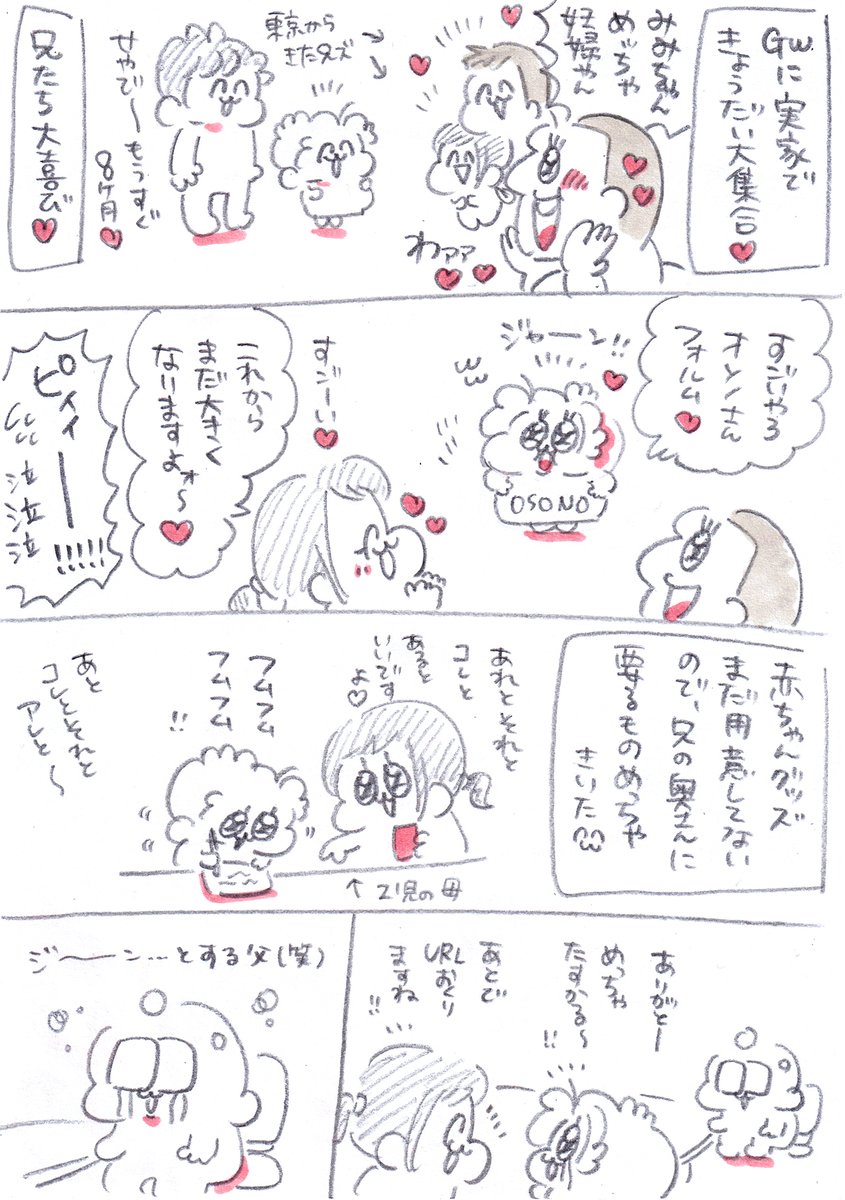 GWに実家で
きょうだい大集合♥
みみちゃん
めっちゃ
妊婦やん
わァァ
♥♥
東京から
きた兄ズ
せやで〜もうすぐ
8ヶ月♥
兄たち大喜び♥
すごいやろ
オソノさん
フォルム♥
ジャーン!!
OSONO
すごーい♥
これから
まだ大きく
なりますよォ〜
♥
ピィィー!!!!!
泣泣泣
赤ちゃんグッズ
まだ用意してない
ので、兄の奥さんに
要るものめっちゃ
きいた
あれとそれと
コレと
あると
いいです
よ♡
フムフム
フムフム
!!
あと
コレとそれと
アレと〜
↑2児の母
ありがとー
めっちゃ
たすかる〜
!!
あとで
URLおくり
ますね
!!
ジ〜〜ン…とする父(笑)